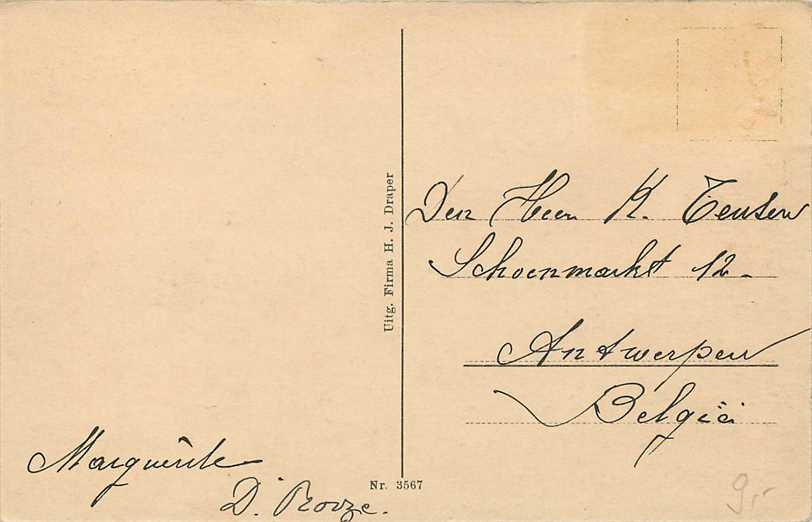 Uitg. Firma H. J. Draper
Den Heer K. Teusen
Schoenmarkt 12.
Antwerpen
België
Marguerite
D.
Nr. 3567
9,-